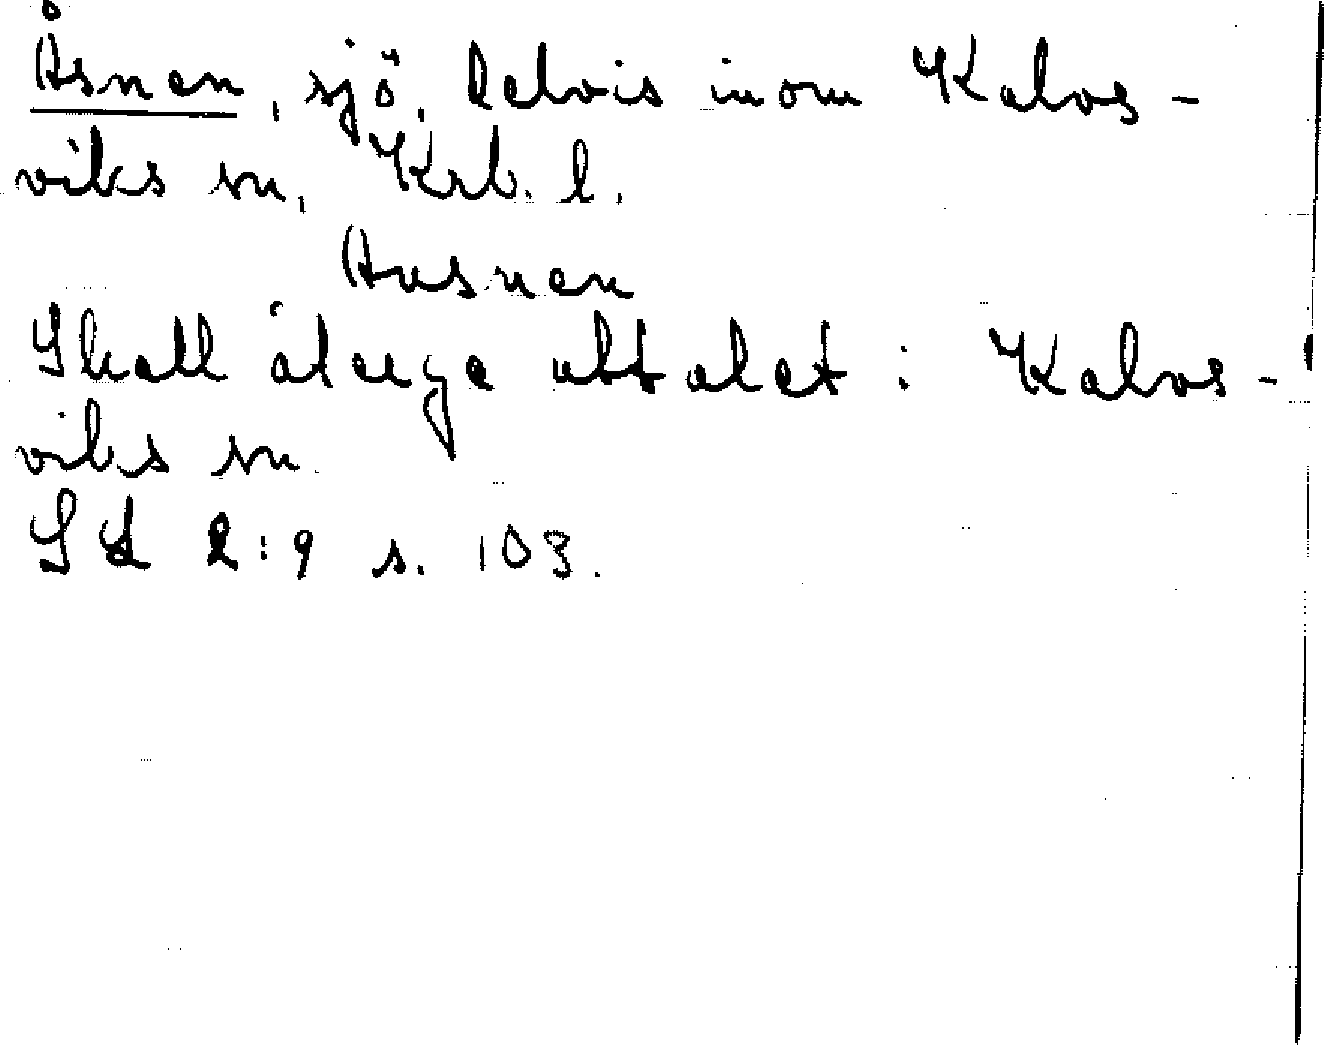 Åsnen, sjö, delvis inom Kalvs-
viks sn, Krb. l.
Ausnen
Skall återge uttalet: Kalvs-
viks sn.
SL 2:9 s. 103.